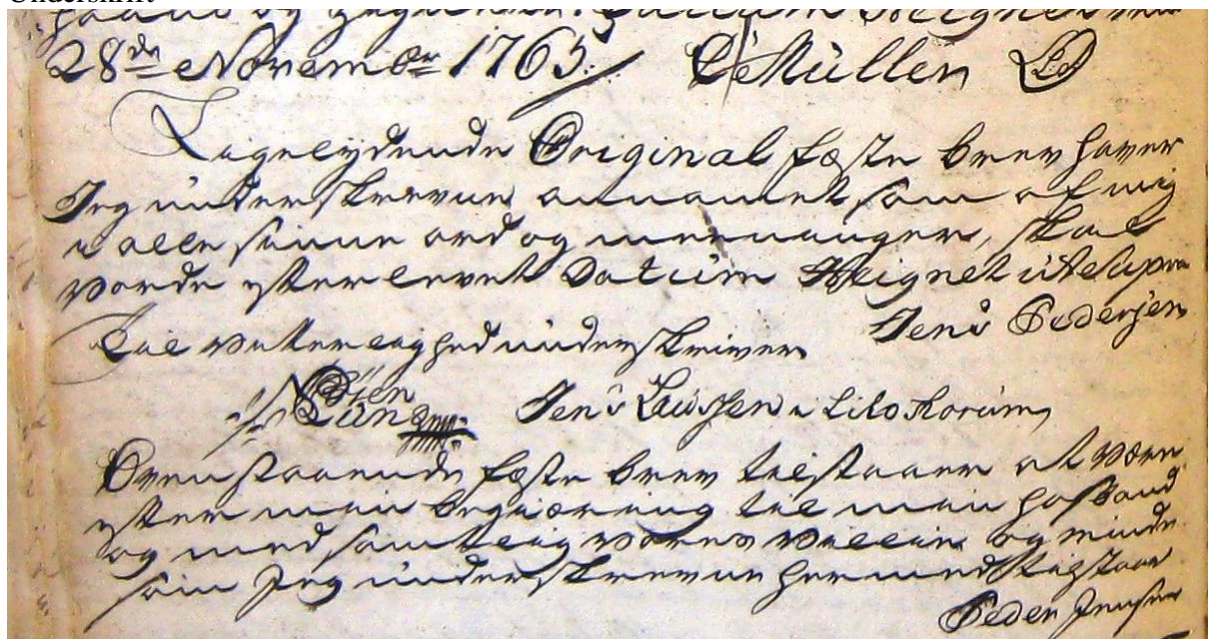 Underskrift
28de Novembr 1765. CMüller
Ligelydende Original fæste brev haver
Jeg underskrevne annamet som af mig
i alle sinne ord og meeninger, skal
vorde efterlevet Datum ut Supra
Jens Pedersen
Til vitterlighed underskriver
Jens Laursen i Lild Korum
Ovenstaaende fæste brev tilstaaer at være
efter min begiæring til min hosbond
og med samtlig vores villie og minde
som Jeg underskrevne hermed tilstaar
Peder Jensen